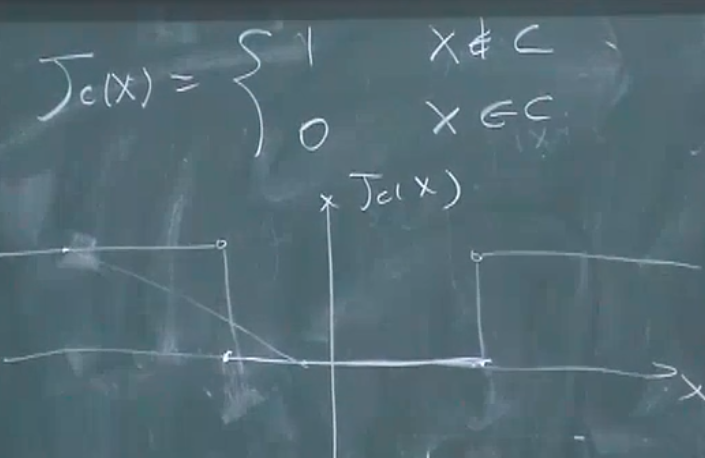 J_c(x) = { 1 x ∉ C
0 x ∈ C
J_c(x)
x